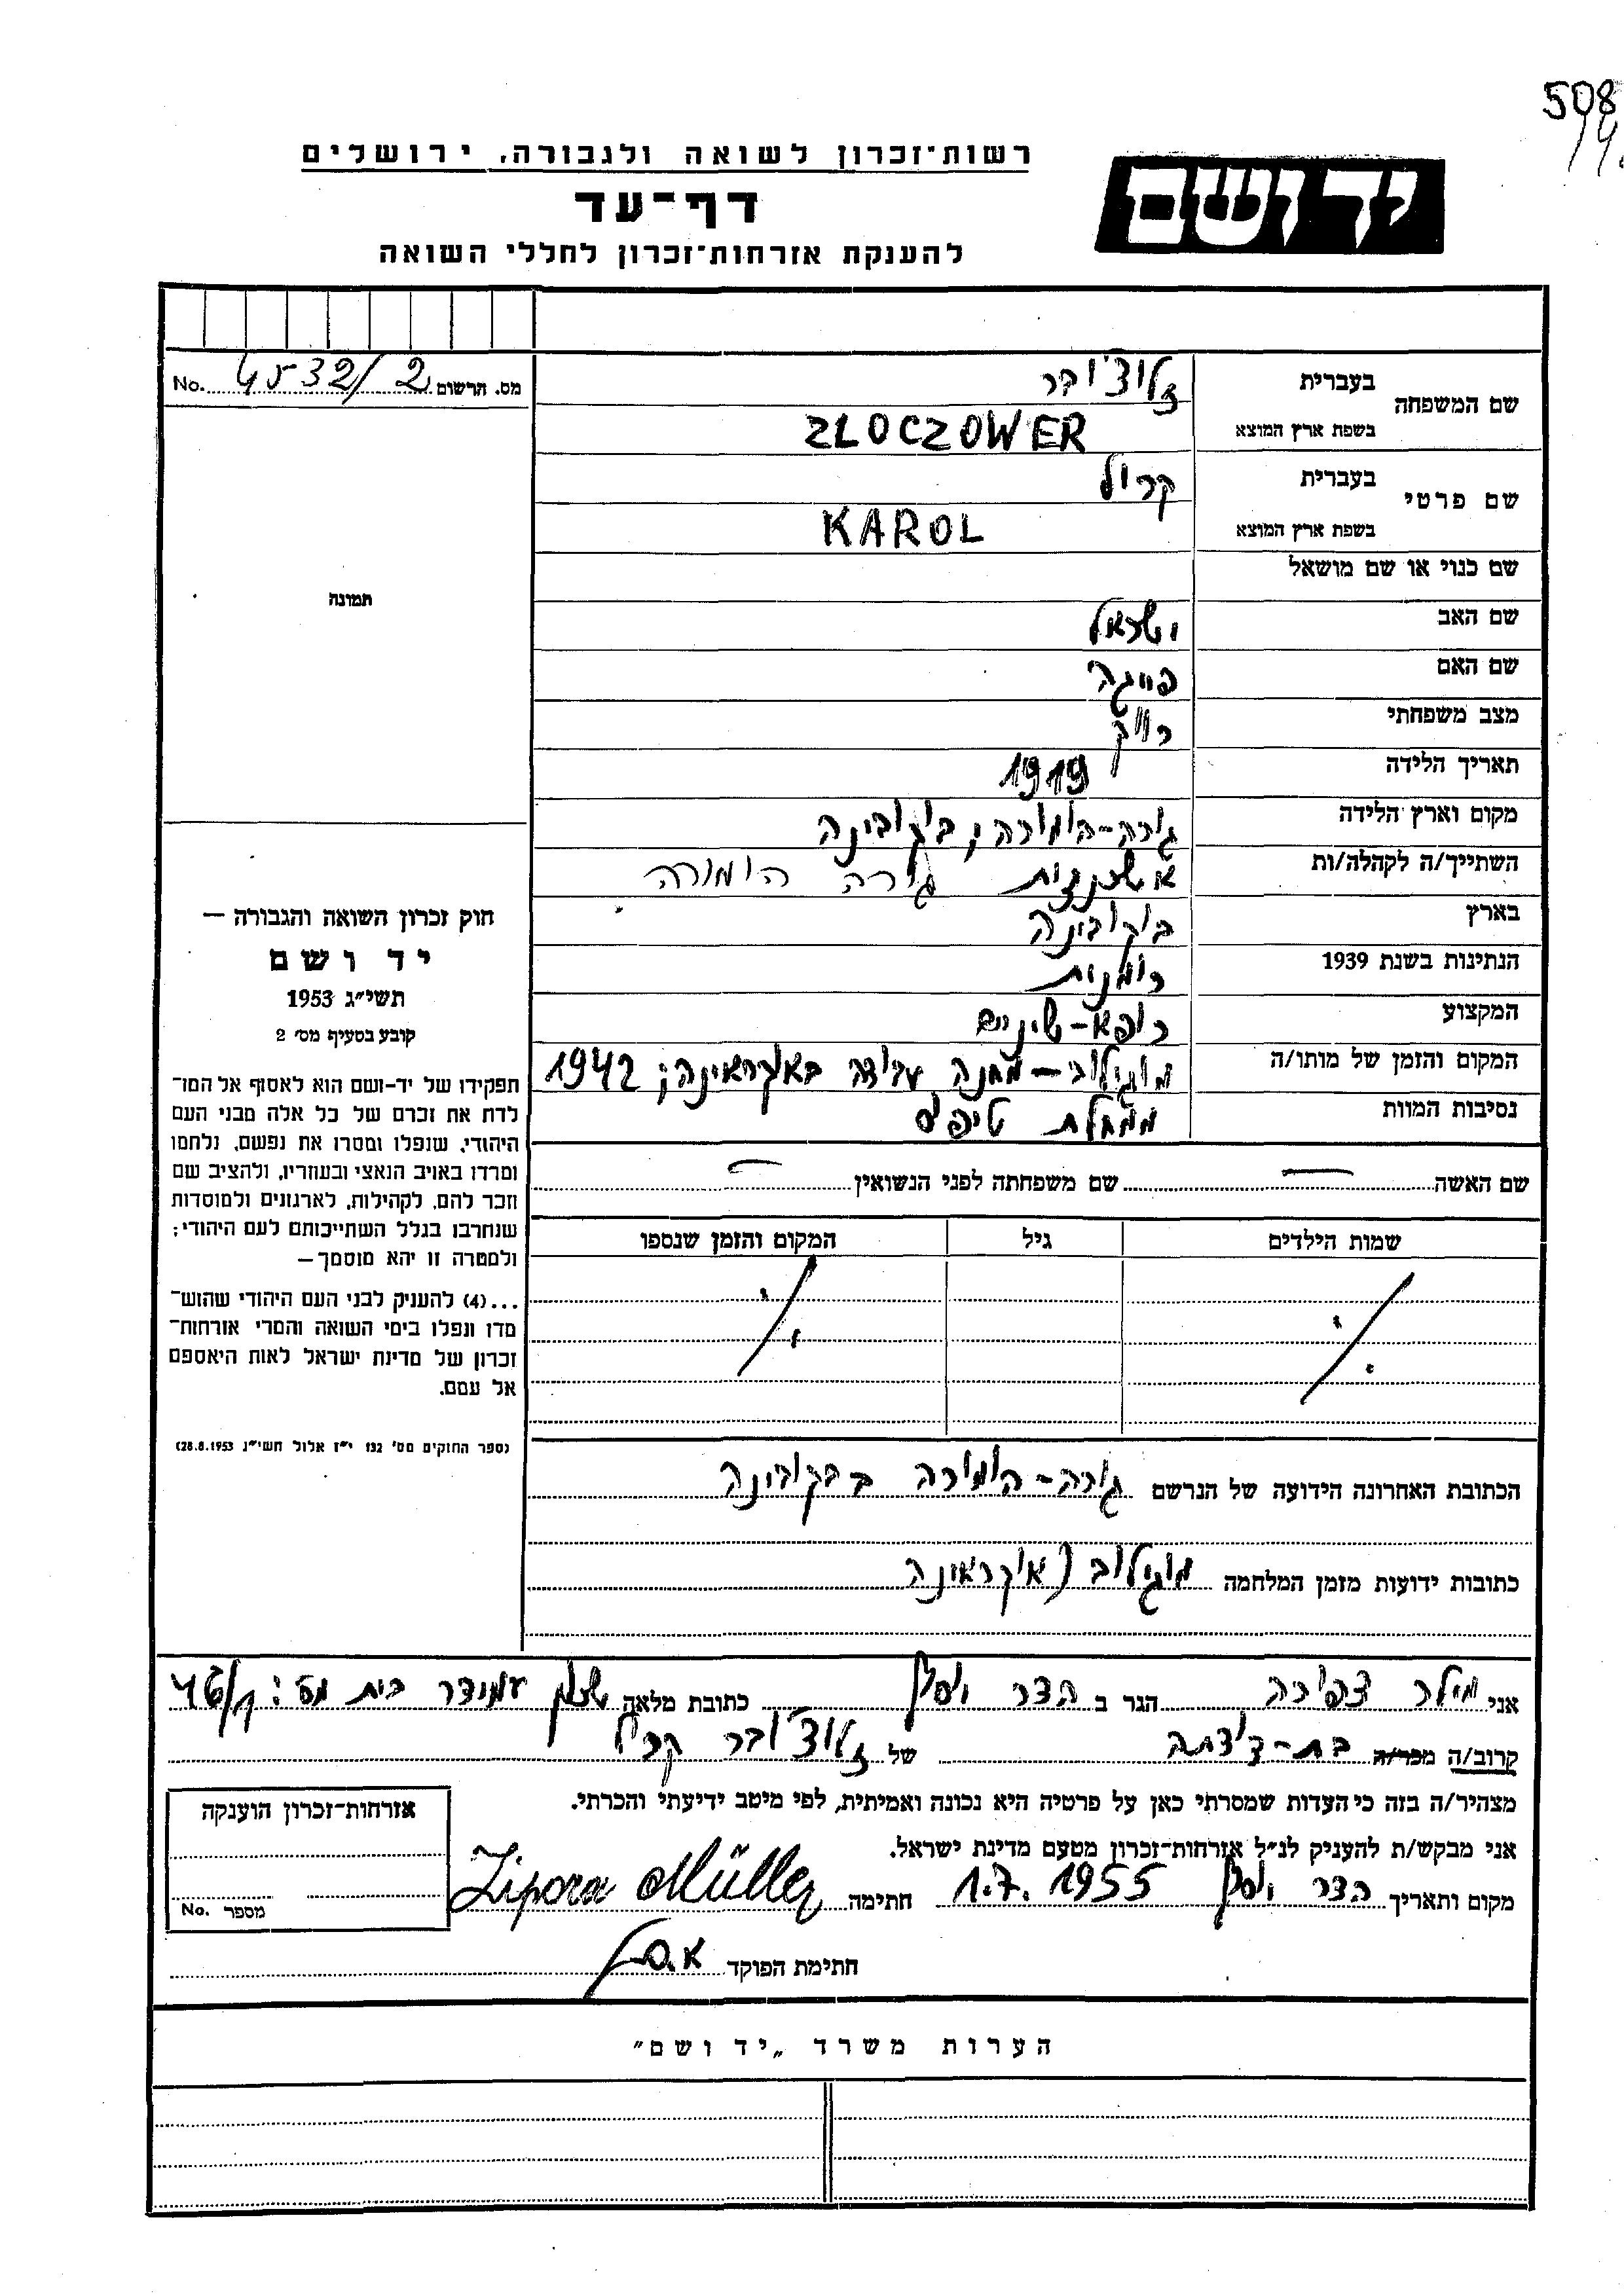 508
14
רשות-זכרון לשואה ולגבורה, ירושלים
יד ושם
דף-עד
להענקת אזרחות-זכרון לחללי השואה
מס. תרשום 4532/2 No.
שם המשפחה בעברית זלוצ'ובר
בשפת ארץ המוצא ZLOCZOWER
שם פרטי בעברית קרול
בשפת ארץ המוצא KAROL
שם כנוי או שם מושאל
תמונה
שם האב ישראל
שם האם פייגה
מצב משפחתי רווק
תאריך הלידה 1919
מקום וארץ הלידה גורה-הומורה; בוקובינה
השתייך/ה לקהלה/ות אשכנזית גורה הומורה
בארץ בוקובינה
הנתינות בשנת 1939 רומנית
המקצוע רופא-שיניים
המקום והזמן של מותו/ה מוגילוב-מחנה עבודה באוקראינה; 1942
נסיבות המוות ממחלת טיפוס
שם האשה — שם משפחתה לפני הנשואין —
שמות הילדים גיל המקום והזמן שנספו
חוק זכרון השואה והגבורה —
יד ושם
תשי"ג 1953
קובע בסעיף מס' 2
תפקידו של יד-ושם הוא לאסוף אל המו־
לדת את זכרם של כל אלה מבני העם
היהודי, שנפלו ומסרו את נפשם, נלחמו
ומרדו באויב הנאצי ובעוזריו, ולהציב שם
וזכר להם, לקהילות, לארגונים ולמוסדות
שנחרבו בגלל השתייכותם לעם היהודי;
ולמטרה זו יהא מוסמך—
...(4) להעניק לבני העם היהודי שהוש־
מדו ונפלו בימי השואה והמרי אזרחות־
זכרון של מדינת ישראל לאות היאספם
אל עמם.
(ספר החוקים מס' 132 י"ז אלול תשי"ג 28.8.1953)
הכתובת האחרונה הידועה של הנרשם גורה-הומורה בבקובינה
כתובות ידועות מזמן המלחמה מוגילוב אוקראינה
אני מילר צפורה הגר ב הדר יוסף כתובת מלאה שכון עמידר בית מס:
קרוב/ה מכר/ה בת-דודתה של זלוצ'ובר קרול
מצהיר/ה בזה כי העדות שמסרתי כאן על פרטיה היא נכונה ואמיתית, לפי מיטב ידיעתי והכרתי.
אני מבקש/ת להעניק לנ"ל אזרחות-זכרון מטעם מדינת ישראל.
מקום ותאריך הדר יוסף 1.7.1955 חתימה Zipora Müller
חתימת הפוקד
אזרחות-זכרון הוענקה
מספר No.
הערות משרד „יד ושם"